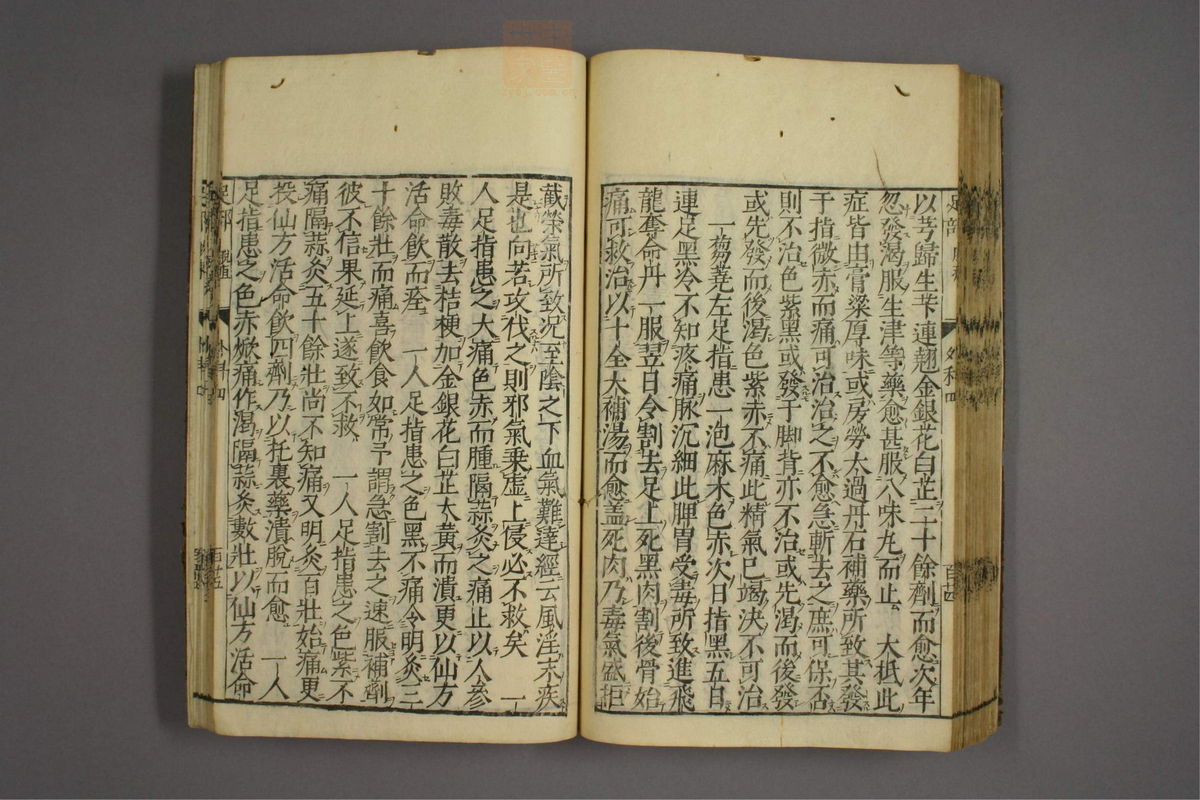 以芎歸生芐連翹金銀花白芷二十餘劑而愈次年
忽發渴服生津等藥愈甚服八味丸而止　大抵此
症皆由膏粱厚味或房勞太過丹石補藥所致其發
于指微赤而痛可治治之不愈急斬去之庶可保否
則不治色紫黑或發于脚背亦不治或先渴而後發
或先發而後渴色紫赤不痛此精氣已竭決不可治
一蒭蕘左足指患一泡麻木色赤次日指黑五日
連足黑冷不知疼痛脉沉細此脾胃受毒所致進飛
龍奪命丹一服翌日令割去足上死黑肉割後骨始
痛可救治以十全大補湯而愈盖死肉乃毒氣盛拒
截榮氣所致况至陰之下血氣難達經云風淫末疾
是也向若攻伐之則邪氣乗虛上侵必不救矣　一
人足指患之大痛色赤而腫隔蒜灸之痛止以人參
敗毒散去桔梗加金銀花白芷大黄而潰更以仙方
活命飲而痊　一人足指患之色黑不痛令明灸三
十餘壯而痛喜飲食如常予謂急割去之速服補劑
彼不信果延上遂致不救　一人足指患之色紫不
痛隔蒜灸五十餘壯尚不知痛又明灸百壯始痛更
投仙方活命飲四劑乃以托裏藥潰脫而愈　一人
足指患之色赤焮痛作渴隔蒜灸數壯以仙方活命